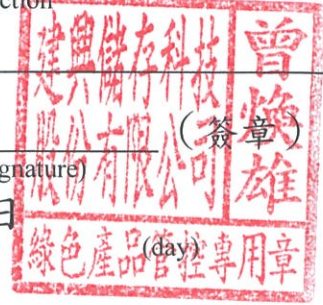 ction
建興儲存科技
股份有限公司
曾煥雄
(簽章)
gnature)
日
(day)
綠色產品管理專用章